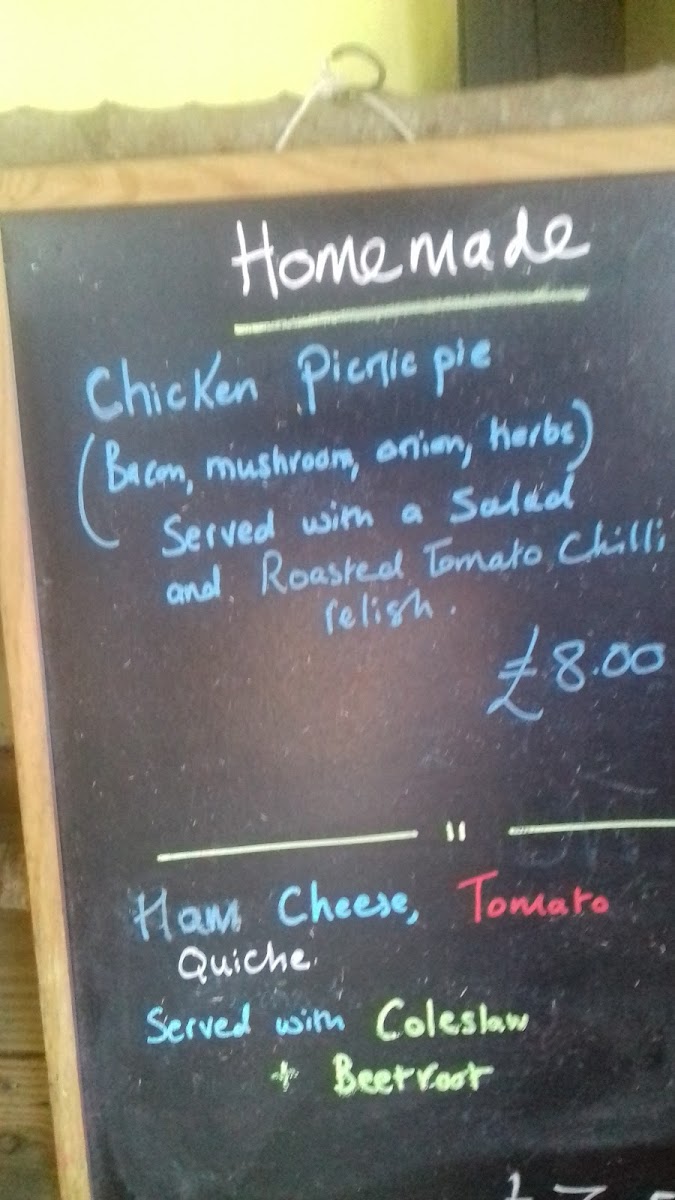 Homemade
Chicken Picnic pie
(Bacon, mushroom, onion, herbs)
Served with a Salad
and Roasted Tomato Chilli
relish.
£8.00
"
Ham Cheese, Tomato
Quiche.
Served with Coleslaw
+ Beetroot